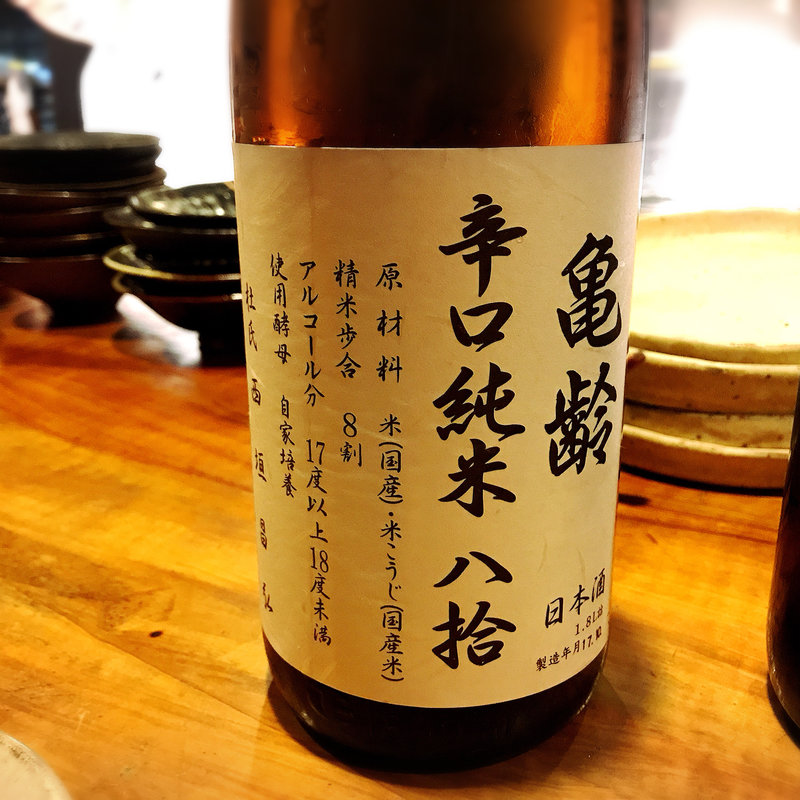 亀齢
日本酒
1.8L詰
製造年月17.
辛口純米 八拾
原材料 米(国産)・米こうじ(国産米)
精米歩合 8割
アルコール分 17度以上18度未満
使用酵母 自家培養
杜氏 西垣昌弘